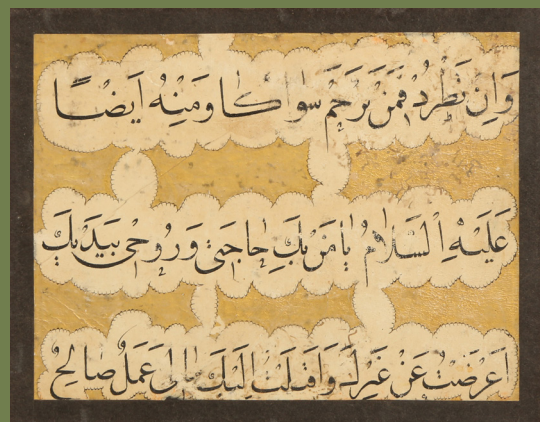 وَاِنْ تَطْرُدْ فَمَنْ نَرْجُمْ سِوَاكَا وَمِنْهُ اَيْضًا
عَلَيْهِ السَّلَامُ يَا مَنْ بِكَ حَاجَتِي وَرُوحِي بِيَدَيْكَ
اَعْرَضْتُ عَنْ غَيْرِكَ وَاَقْبَلْتُ اِلَيْكَ مَالِي عَمَلٌ صَالِحٌ